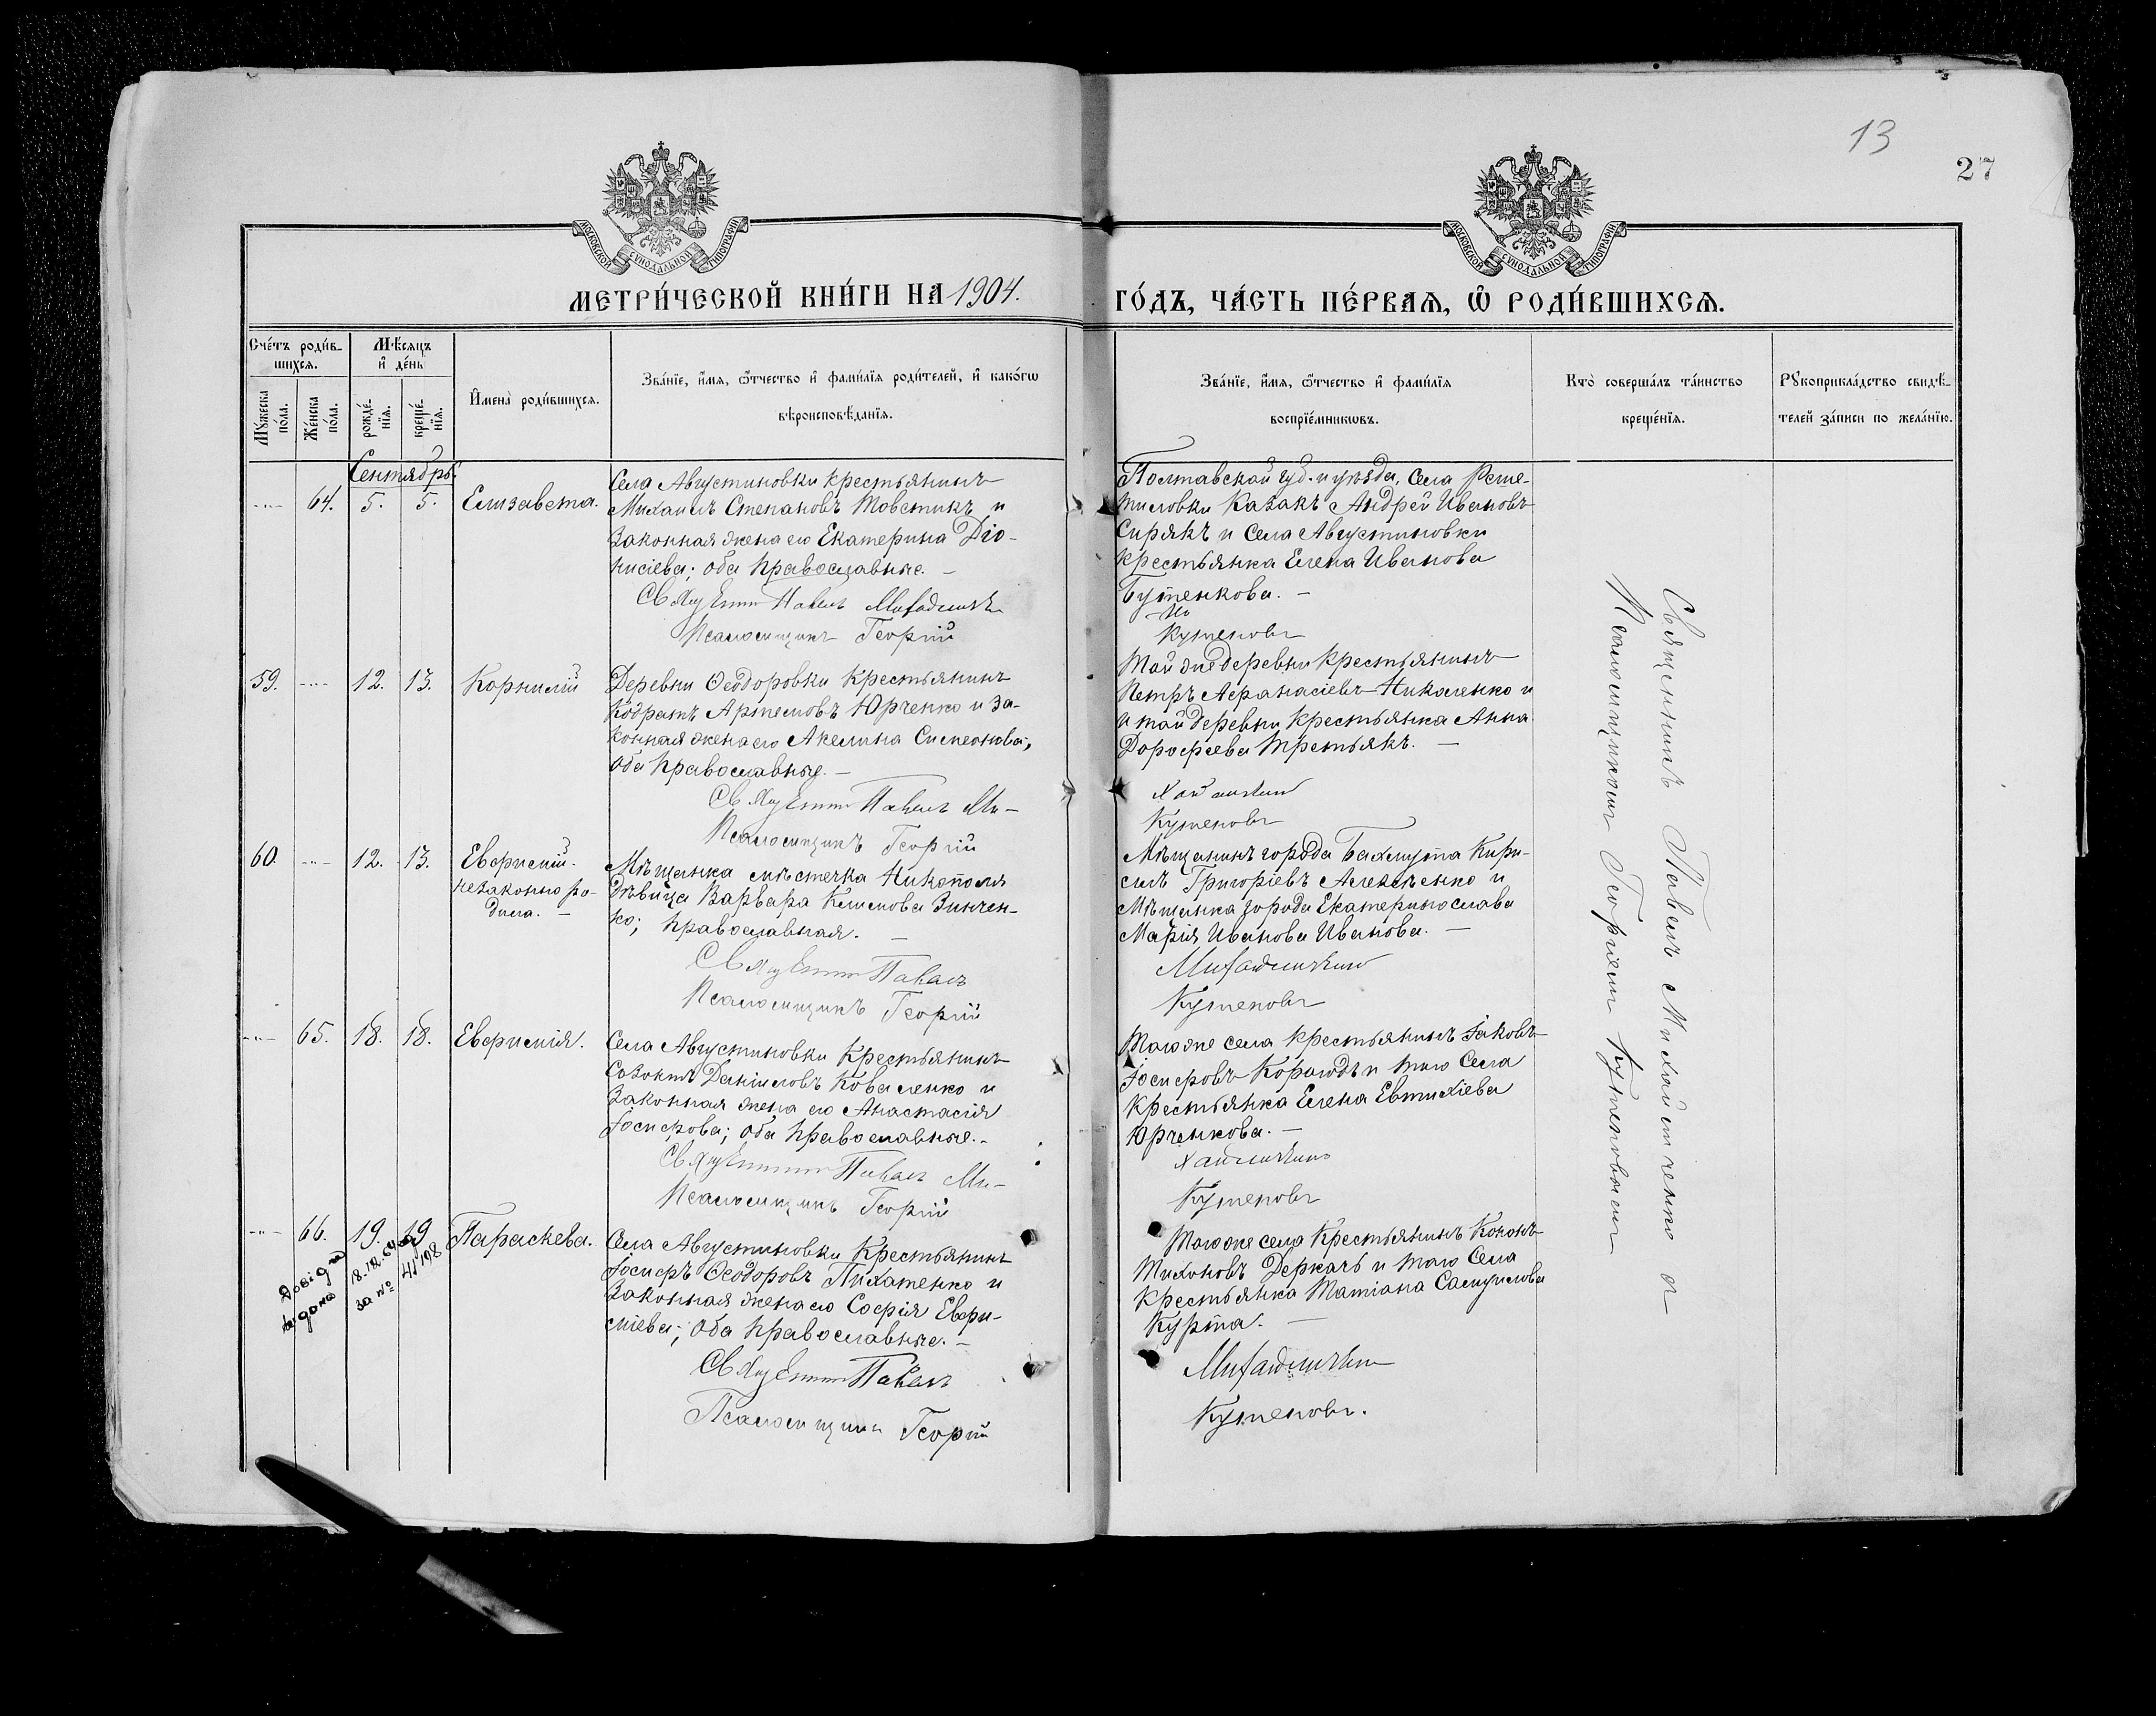 13
27
МОСКОВСКОЙ СѴНОДАЛЬНОЙ ТИПОГРАФІИ
МОСКОВСКОЙ СѴНОДАЛЬНОЙ ТИПОГРАФІИ
МЕТРИ́ЧЕСКОЙ КНИ́ГИ НА 1904.
ГО́ДЪ, ЧА́СТЬ ПЕ́РВАѦ, Ѡ РОДИ́ВШИХСѦ.
Сче́тъ роди́в-
шихсѧ.
Мꙋ́жеска
по́ла.
Же́нска
по́ла.
Мѣ́сѧцъ
и де́нь
рожде́-
нїѧ.
креще́-
нїѧ.
И҆мена̀ роди́вшихсѧ.
Зва́нїе, и҆́мѧ, ѻ҆́тчество и҆ фами́лїѧ роди́телей, и҆ како́гѡ
вѣроисповѣ́данїѧ.
Зва́нїе, и҆́мѧ, ѻ҆́тчество и҆ фами́лїѧ
воспрїе́мникѡвъ.
Кто̀ соверша́лъ та́инство
креще́нїѧ.
Рꙋкоприкла́дство свидѣ́-
телей за́писи по жела́нїю.
Сентябрь
64. 5. 5. Елизавета.
Села Августиновки крестьянинъ
Михаилъ Степановъ Товстикъ и
законная жена его Екатерина Діо-
нисіева; оба православные. –
Священникъ Павелъ
Псаломщикъ Георгій
Полтавской губ. и уѣзда, села Реше-
тиловки казакъ Андрей Ивановъ
Сирякъ и села Августиновки
крестьянка Елена Иванова
Бутенкова. –
Кутеповъ
59. 12. 13. Корнилій
Деревни Ѳеодоровки крестьянинъ
Кодратъ Артемовъ Юрченко и за-
конная жена его Акелина Симеонова;
оба православные. –
Священникъ Павелъ Ми-
Псаломщикъ Георгій
Той же деревни крестьянинъ
Петръ Аѳанасіевъ Николенко и
и той деревни крестьянка Анна
Дороѳеева Третьякъ. –
Кутеповъ
60. 12. 13. Евѳимій.
незаконно ро-
дила. –
Мѣщанка мѣстечка Никополя
дѣвица Варвара Климова Зинчен-
ко; православная. –
Священникъ Павелъ
Псаломщикъ Георгій
Мѣщанинъ города Бахмута Кири-
лъ Григоріевъ Алексѣенко и
мѣщанка города Екатеринослава
Марія Иванова Иванова. –
Кутеповъ
65. 18. 18. Евѳимія.
Села Августиновки крестьянинъ
Созонтъ Даніиловъ Коваленко и
законная жена его Анастасія
Іосифова; оба православные. –
Священникъ Павелъ Ми-
Псаломщикъ Георгій
Того же села крестьянинъ Іаковъ
Іосифовъ и того села
крестьянка Елена Евтихіева
Юрченкова. –
Кутеповъ
66. 19. 19 Параскева.
Довідка
видана
18.12.64
за № 41/198
Села Августиновки крестьянинъ
Іосифъ Ѳеодоровъ Пихатенко и
законная жена его Софія Евѳи-
міева; оба православные. –
Священникъ Павелъ
Псаломщикъ Георгій
Того же села крестьянинъ Кононъ
Тихоновъ Деркачъ и того села
крестьянка Татіана Самуилова
Курта. –
Кутеповъ.
Священникъ Павелъ съ
Псаломщикомъ Георгіемъ Кутеповымъ